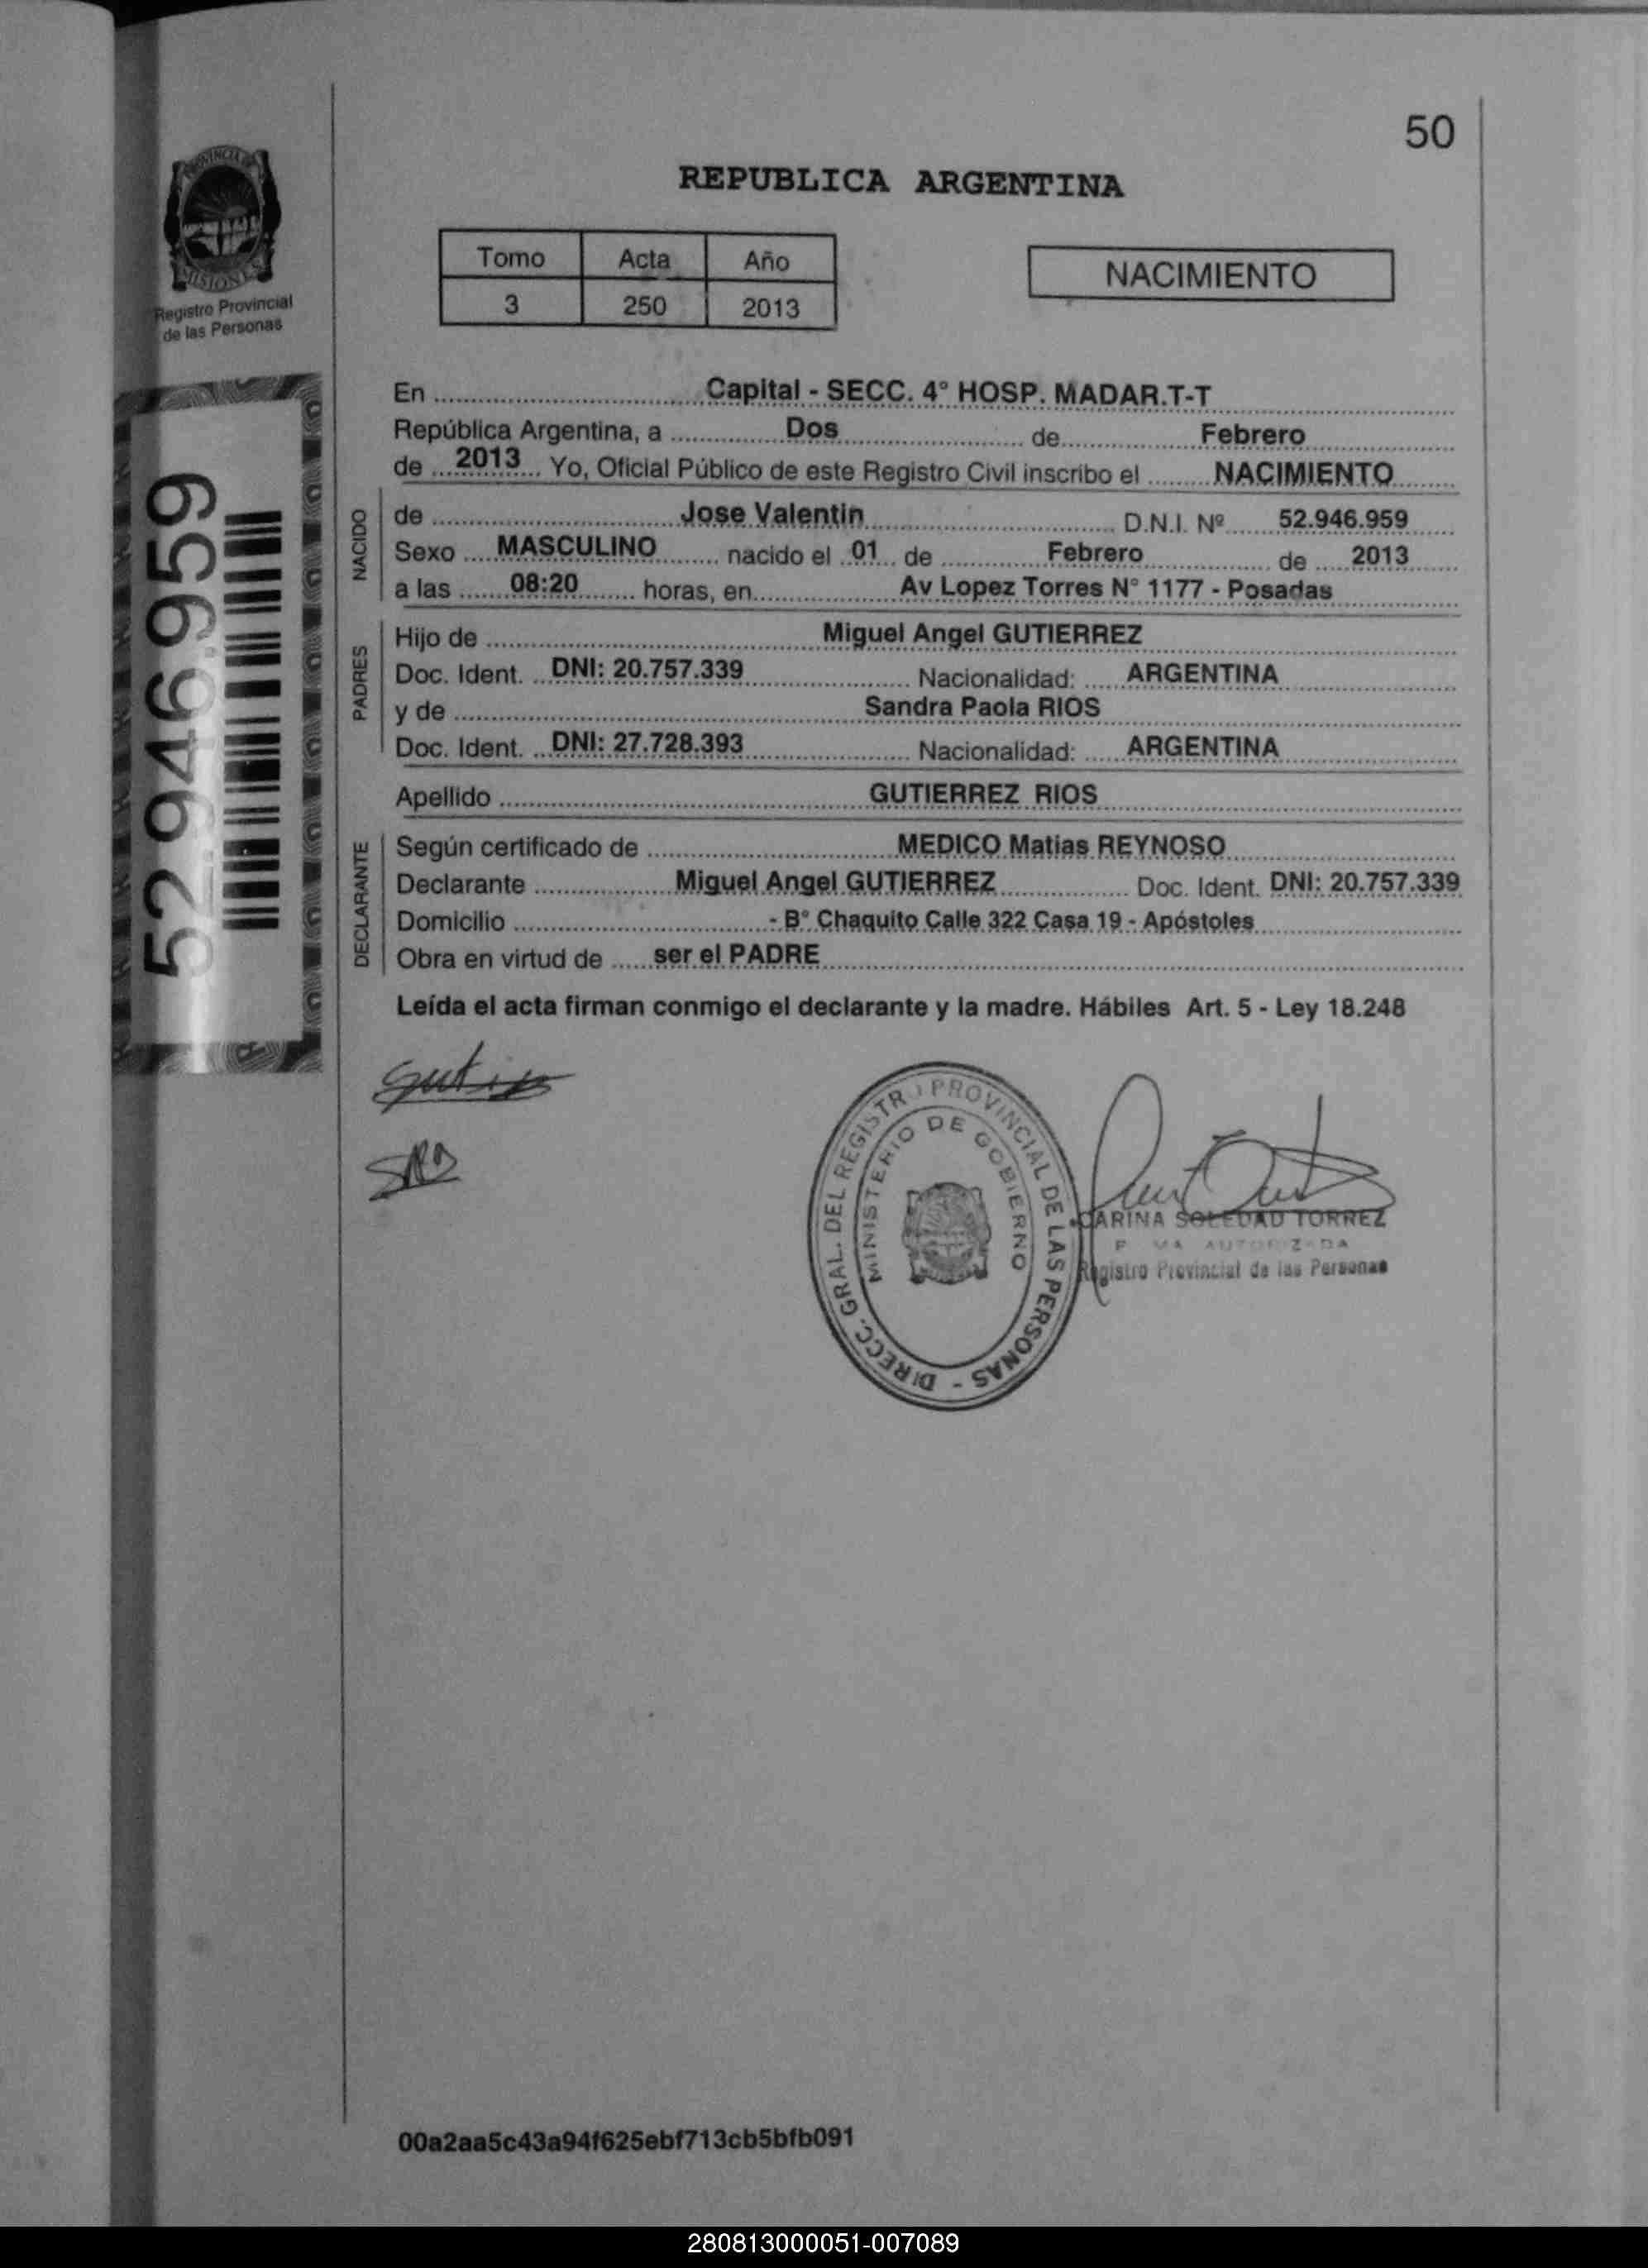 50
PROVINCIA DE
MISIONES
Registro Provincial
de las Personas
52.946.959
REPUBLICA ARGENTINA
Tomo Acta Año
3 250 2013
NACIMIENTO
En Capital - SECC. 4° HOSP. MADAR.T-T
República Argentina, a Dos de Febrero
de 2013 Yo, Oficial Público de este Registro Civil inscribo el NACIMIENTO
NACIDO
de Jose Valentin D.N.I. Nº 52.946.959
Sexo MASCULINO nacido el 01 de Febrero de 2013
a las 08:20 horas, en Av Lopez Torres N° 1177 - Posadas
PADRES
Hijo de Miguel Angel GUTIERREZ
Doc. Ident. DNI: 20.757.339 Nacionalidad: ARGENTINA
y de Sandra Paola RIOS
Doc. Ident. DNI: 27.728.393 Nacionalidad: ARGENTINA
Apellido GUTIERREZ RIOS
DECLARANTE
Según certificado de MEDICO Matias REYNOSO
Declarante Miguel Angel GUTIERREZ Doc. Ident. DNI: 20.757.339
Domicilio - B° Chaquito Calle 322 Casa 19 - Apóstoles
Obra en virtud de ser el PADRE
Leída el acta firman conmigo el declarante y la madre. Hábiles Art. 5 - Ley 18.248
DIRECC. GRAL. DEL REGISTRO PROVINCIAL DE LAS PERSONAS -
MINISTERIO DE GOBIERNO
CARINA SOLEDAD TORREZ
FIRMA AUTORIZADA
Registro Provincial de las Personas
00a2aa5c43a94f625ebf713cb5bfb091
280813000051-007089